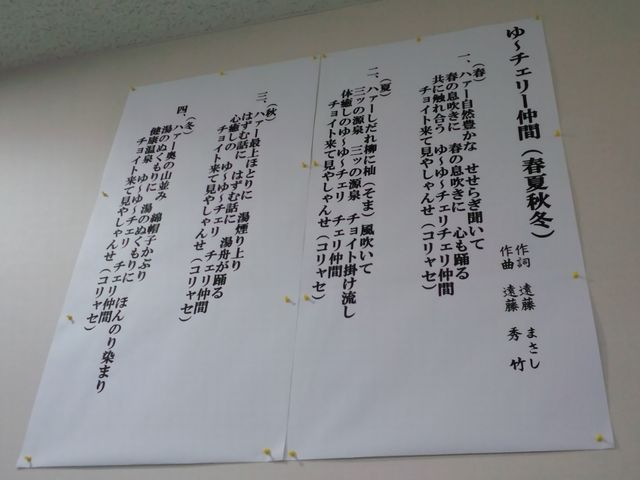 ゆ～チェリー仲間（春夏秋冬）
作詞　遠藤　まさし
作曲　遠藤　秀竹
（春）
一、ハァー自然豊かな　せせらぎ聞いて
春の息吹きに　春の息吹きに　心も踊る
共に触れ合う　ゆ～ゆ～チェリチェリ仲間
チョイト来て見やしゃんせ（コリャセ）
（夏）
二、ハァーしだれ柳に杣（そま）風吹いて
三ッの源泉　三ッの源泉　チョイト掛け流し
体癒しのゆ～ゆ～チェリ　チェリ仲間
チョイト来て見やしゃんせ（コリャセ）
（秋）
三、ハァー最上ほとりに　湯煙り上り
はずむ話に　はずむ話に　湯舟が踊る
心癒しの　ゆ～ゆ～チェリ　チェリ仲間
チョイト来て見やしゃんせ（コリャセ）
（冬）
四、ハァー奥の山並み　綿帽子かぶり
湯のぬくもりに　湯のぬくもりに　ほんのり染まり
健康温泉のゆ～ゆ～チェリ　チェリ仲間
チョイト来て見やしゃんせ（コリャセ）